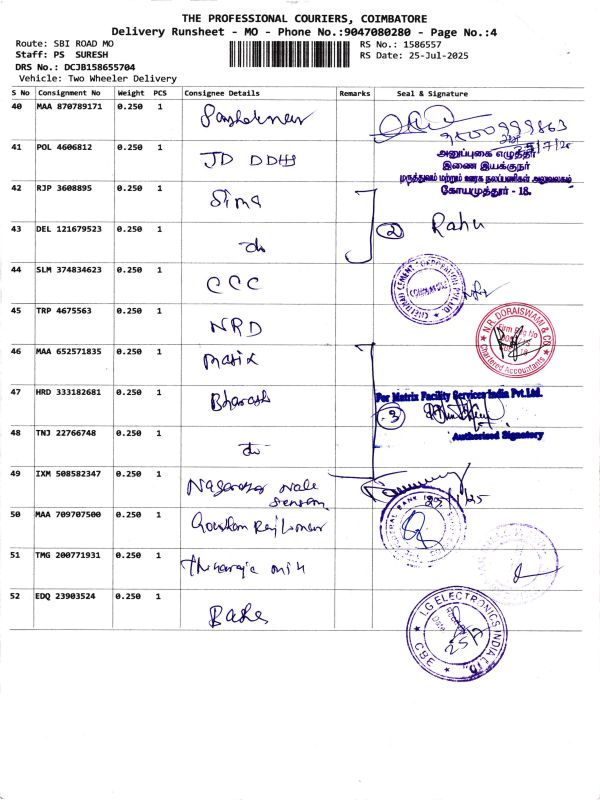 THE PROFESSIONAL COURIERS, COIMBATORE
Delivery Runsheet - MO - Phone No.:9047080280 - Page No.:4
Route: SBI ROAD MO
RS No.: 1586557
Staff: PS SURESH
RS Date: 25-Jul-2025
DRS No.: DCJB158655704
Vehicle: Two Wheeler Delivery
S No Consignment No Weight PCS Consignee Details Remarks Seal & Signature
40 MAA 870789171 0.250 1
41 POL 4606812 0.250 1 JD DDHS
அனுப்புகை எழுத்தர்
இணை இயக்குநர்
மருத்துவம் மற்றும் ஊரக நலப்பணிகள் அலுவலகம்
கோயமுத்தூர் - 18.
42 RJP 3608895 0.250 1 Sima
43 DEL 121679523 0.250 1 do 2 Rahu
44 SLM 374834623 0.250 1 CCC
CHETTINAD CEMENT CORPORATION
COIMBATORE
45 TRP 4675563 0.250 1 NRD
N.R. DORAISWAMI & CO.
Chartered Accountants
46 MAA 652571835 0.250 1 Matix
47 HRD 333182681 0.250 1 Bharash
For Matrix Facility Services India Pvt.Ltd.
3
Authorised Signatory
48 TNJ 22766748 0.250 1 do
49 IXM 508582347 0.250 1
50 MAA 709707500 0.250 1
51 TMG 200771931 0.250 1
52 EDQ 23903524 0.250 1
I.G ELECTRONICS INDIA LTD.
CBE